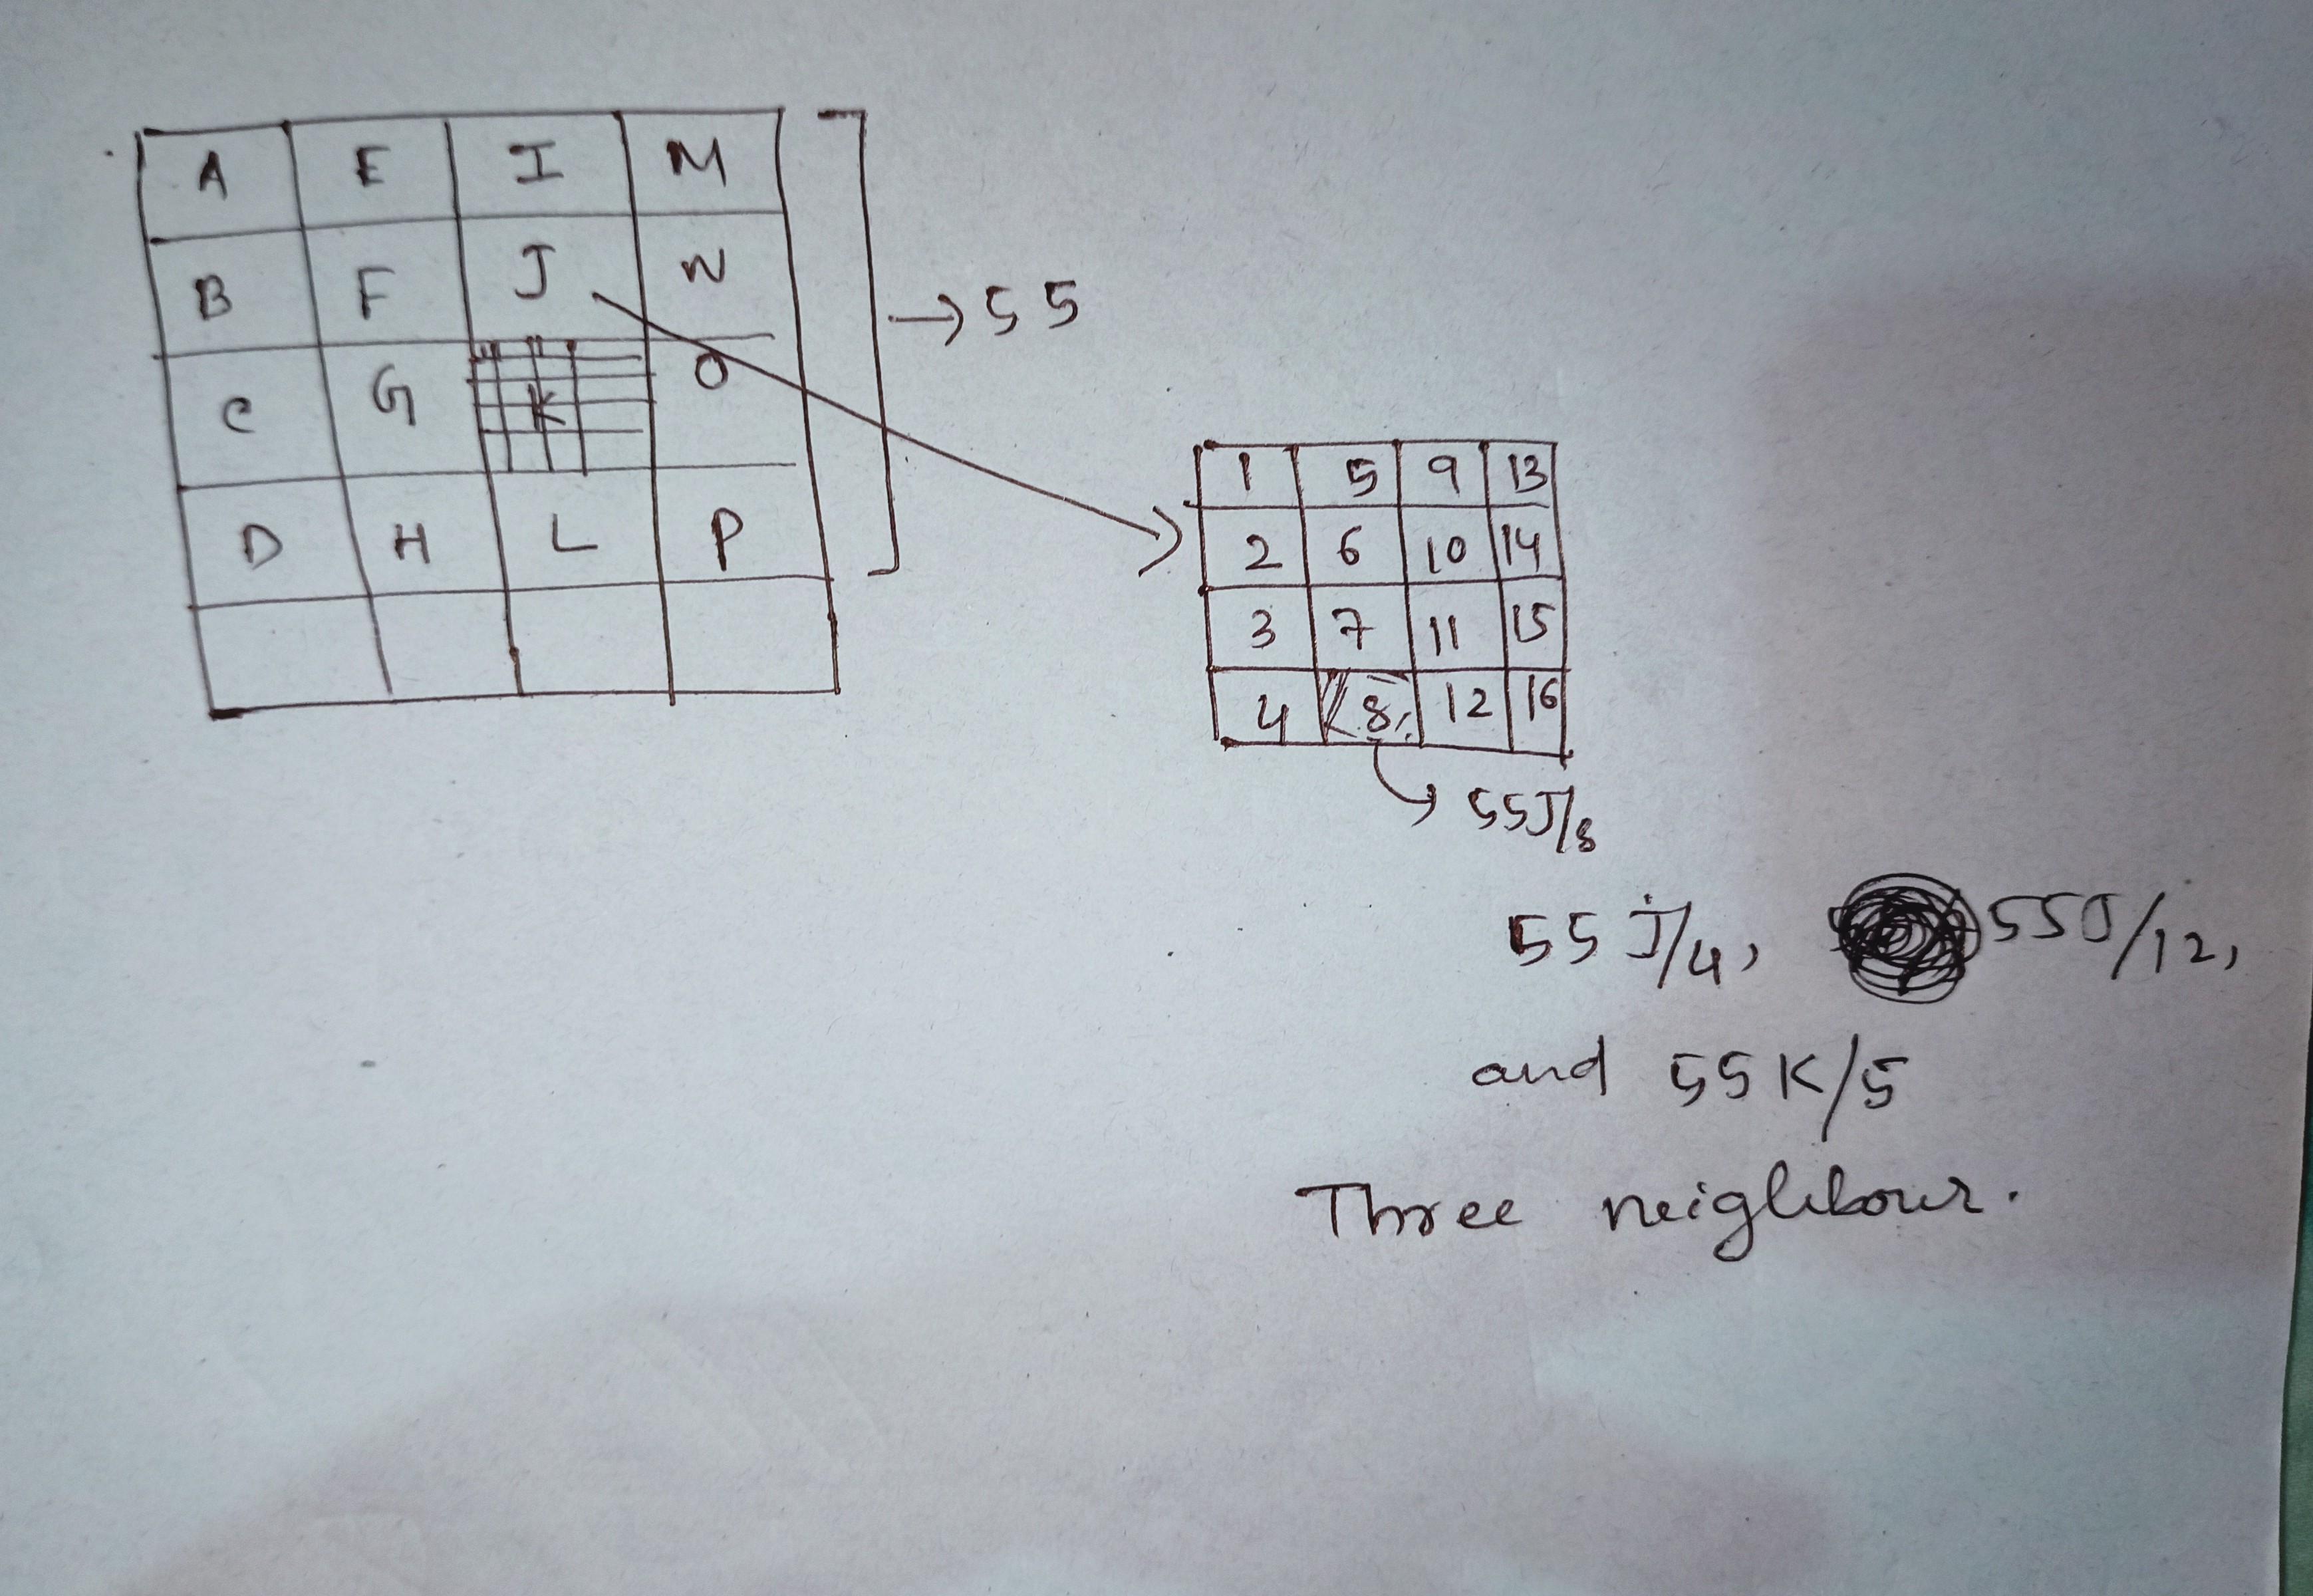 A E I M
B F J N
C G K O
D H L P
→55
1 5 9 13
2 6 10 14
3 7 11 15
4 8 12 16
55J/8
55J/4, 55J/12,
and 55K/5
Three neighbour.